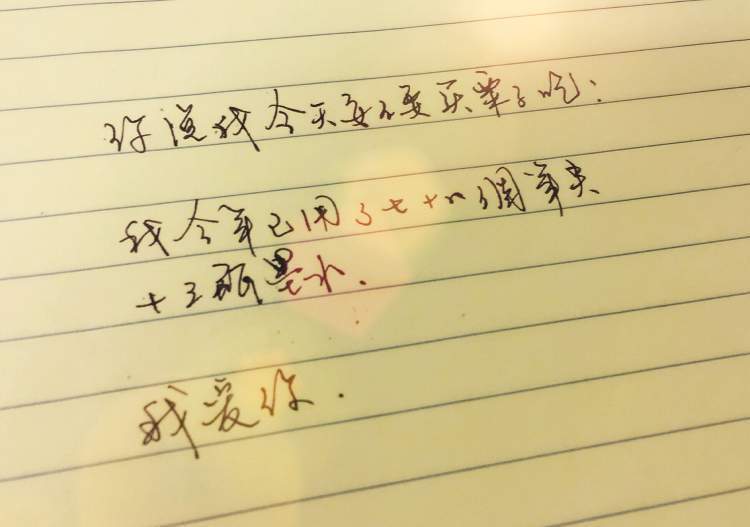 你说我今天要不要买栗子吃:
我今年已用了七十八个笔尖
十三瓶墨水.
我爱你.